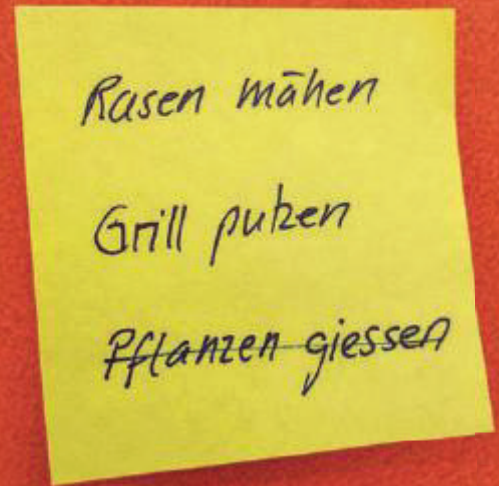 Rasen mähen
Grill putzen
Pflanzen giessen